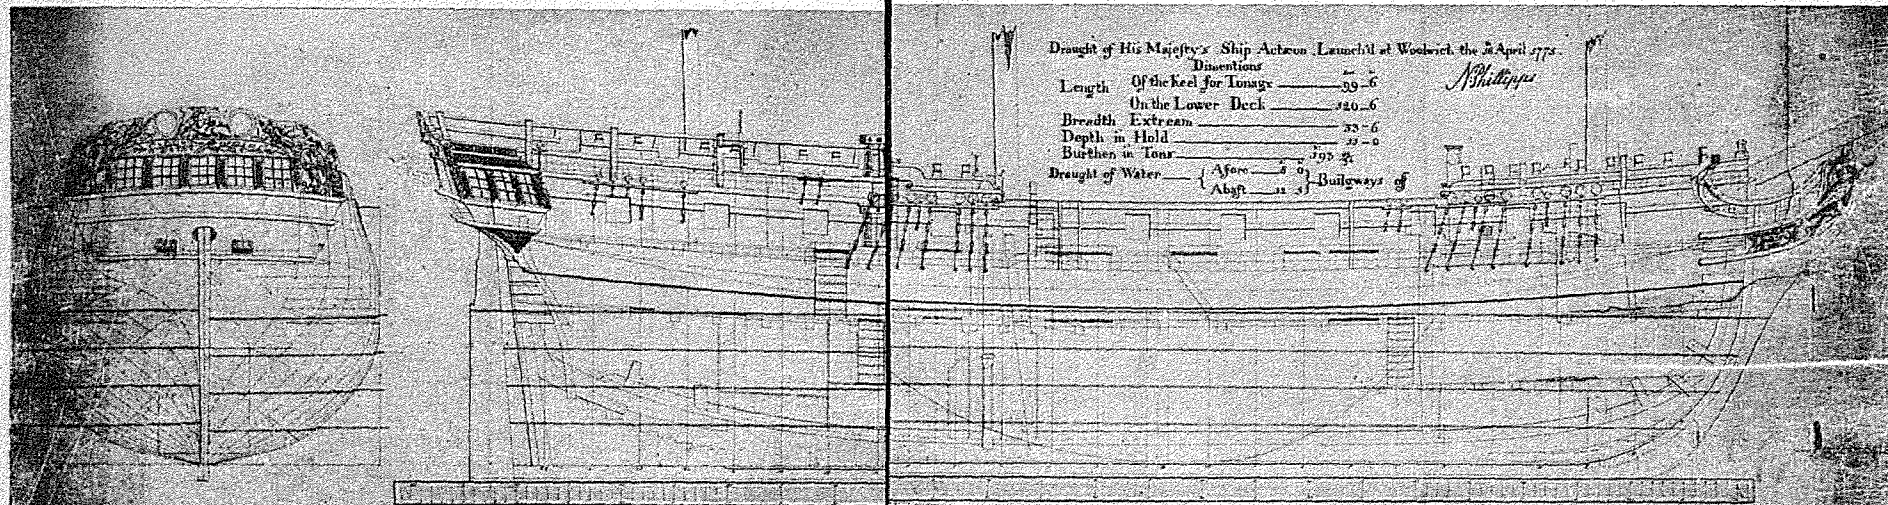 Draught of His Majesty's Ship Actæon, Launch'd at Woolwich the 18 April 1775.
Dimentions
N Phillipps
Length Of the Keel for Tonage 99-6
On the Lower Deck 120-6
Breadth Extream 33-6
Depth in Hold 11-0
Burthen in Tons 593
Draught of Water Afore 8 0
Abaft 12 3 Builgways of